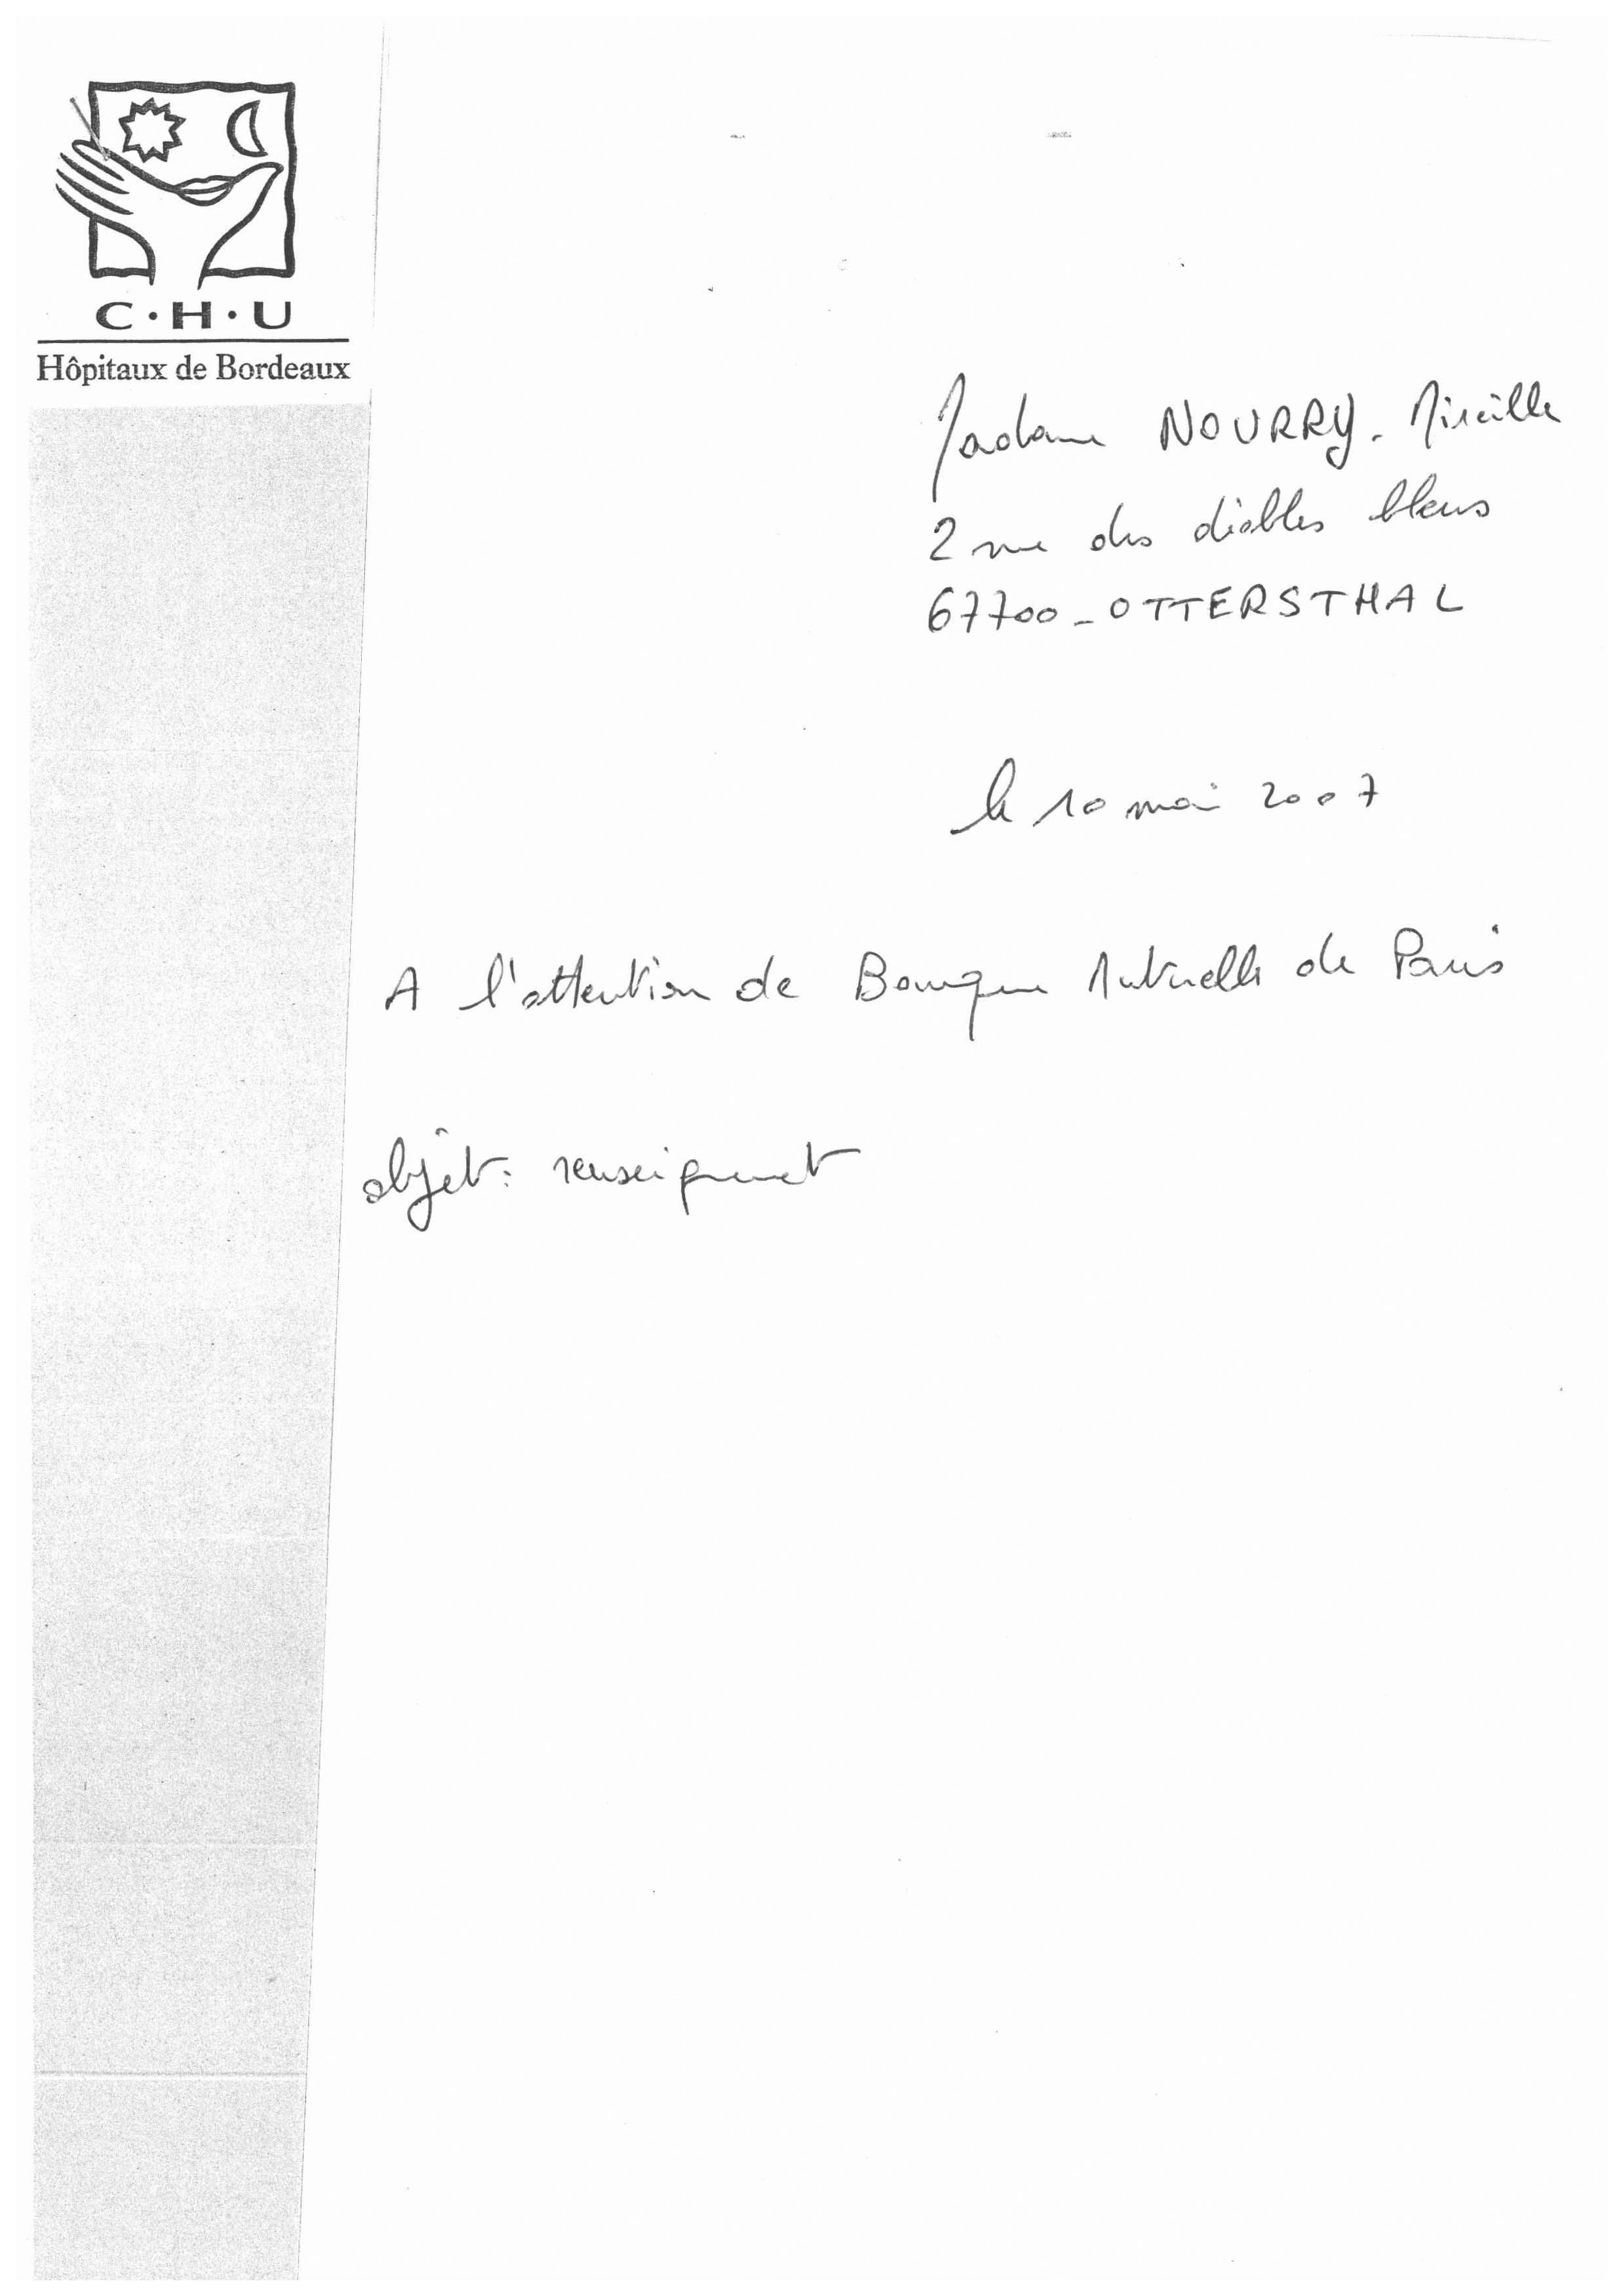 C·H·U
Hôpitaux de Bordeaux
Madame NOURRY. Mireille
2 rue des diables bleus
67700 _ OTTERSTHAL
le 10 mai 2007
A l'attention de Banque Mutuelle de Paris
objet: renseignement